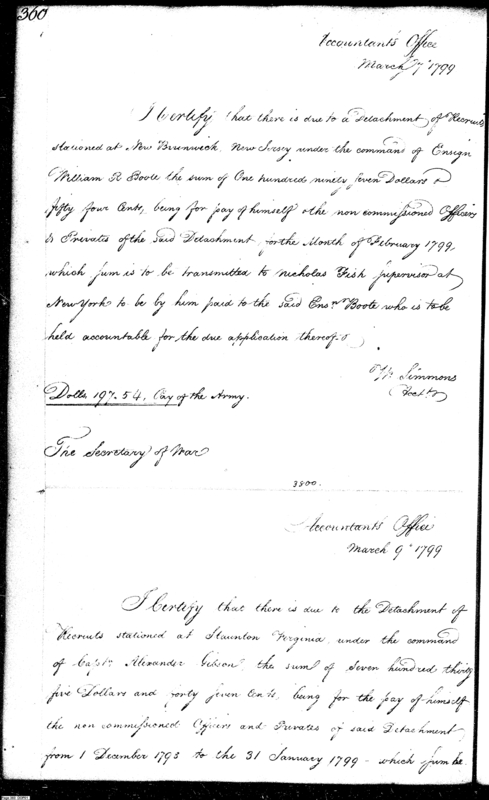 360
Accountant's Office
March 7th 1799
I Certify that there is due to a Detachment of Recruits
stationed at New Brunswick, New Jersey under the command of Ensign
William R Boote the sum of One hundred ninety seven Dollars &
fifty four Cents, being for pay of himself & the non commissioned Officers
& Privates of the said Detachment, for the Month of February 1799,
which sum is to be transmitted to Nicholas Fish Supervisor at
New York to be by him paid to the said Ensn Boote who is to be
held accountable for the due application thereof.
Wm Simmons
Acctt
Dolls 197.54. Pay of the Army.
The Secretary of War
3800.
Accountant's Office
March 9th 1799
I Certify that there is due to the Detachment of
Recruits stationed at Staunton Virginia, under the command
of Captn Alexander Gibson, the sum of Seven hundred thirty
five Dollars and forty seven Cents, being for the pay of himself
the non commissioned Officers and Privates of said Detachment,
from 1 December 1798 to the 31 January 1799 - which sum he